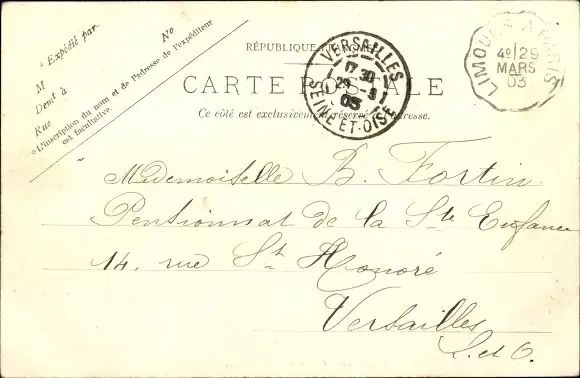 * Expédié par
No
M
Demt à
Rue
* L'inscription du nom et de l'adresse de l'expéditeur
est facultative.
RÉPUBLIQUE
CARTE POSTALE
Ce côté est exclusivement réservé à l'adresse.
VERSAILLES
17 30
29 -3
03
SEINE-ET-OISE
LIMOURS A PARIS
4º/29
MARS
03
Mademoiselle B. Fortin.
Pensionnat de la Ste Enfance
14, rue St Honoré
Versailles
S. et O.